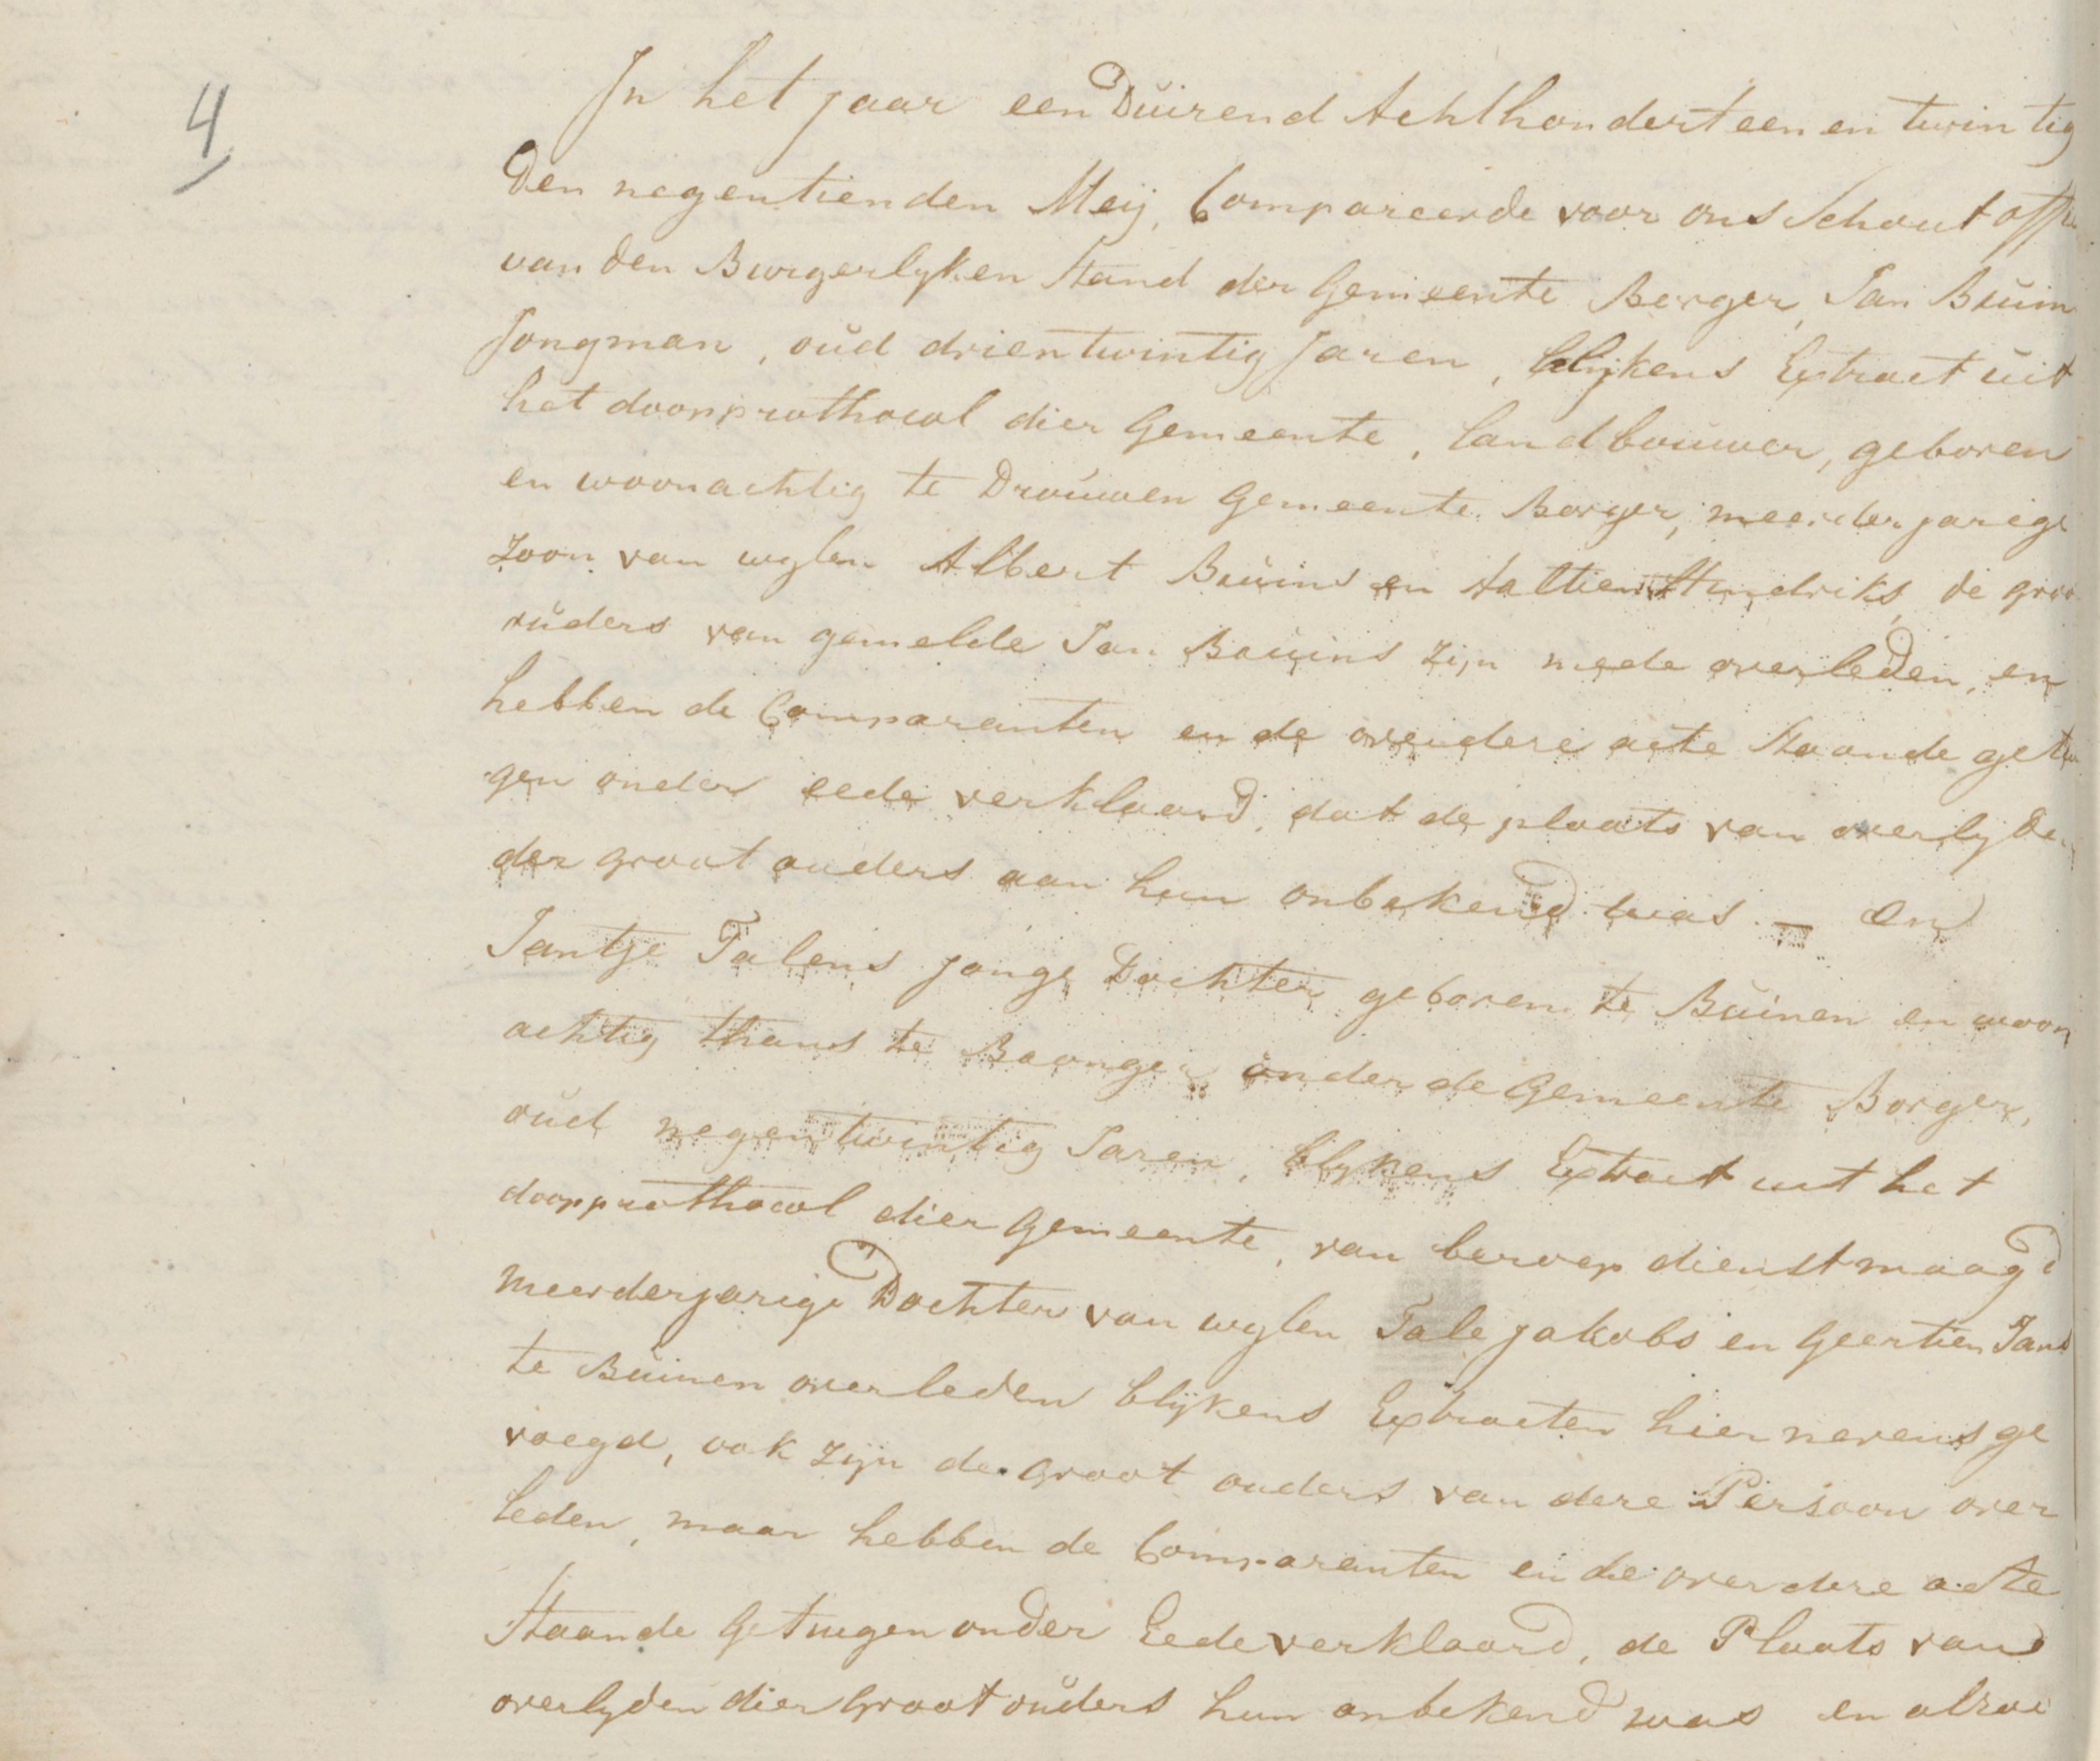 4
In het jaar een Duizend Achthondert een en twintig
Den negentienden Meij, Compareerde voor ons Schout
van den Burgerlyken Stand der Gemeente Borger, Jan Bruin
Jongman, oud drientwintig Jaren, blijkens Extract uit
het doopprothocol dier Gemeente, landbouwer, geboren
en woonachtig te Drouwen Gemeente Borger, meerderjarige
zoon van wylen Albert Bruins en Aaltien Hendriks, de groo
ouders van gemelde Jan Bruins zijn mede overleden, en
hebben de Comparanten en de over dere acte Staande getu
gen onder eede verklaard, dat de plaats van overlyden
der groot ouders aan hun onbekend was. — En
Jantje Talens jonge Dochter geboren te Buinen en woon
achtig thans te Borger onder de Gemeente Borger,
oud negentwintig Jaren, blykens Extract uit het
doopprothocol dier Gemeente, van beroep dienstmaagd
meerderjarige Dochter van wylen Tale Jakobs en Geertien Jans
te Buinen overleden blijkens Extracten hier nevens ge
voegd, ook zijn de groot ouders van dere Persoon over
leden, maar hebben de Comparanten en de over dere acte
Staande Getuegen onder Eede verklaard, de Plaats van
overlyden dier Groot ouders hun onbekend was en alzoo